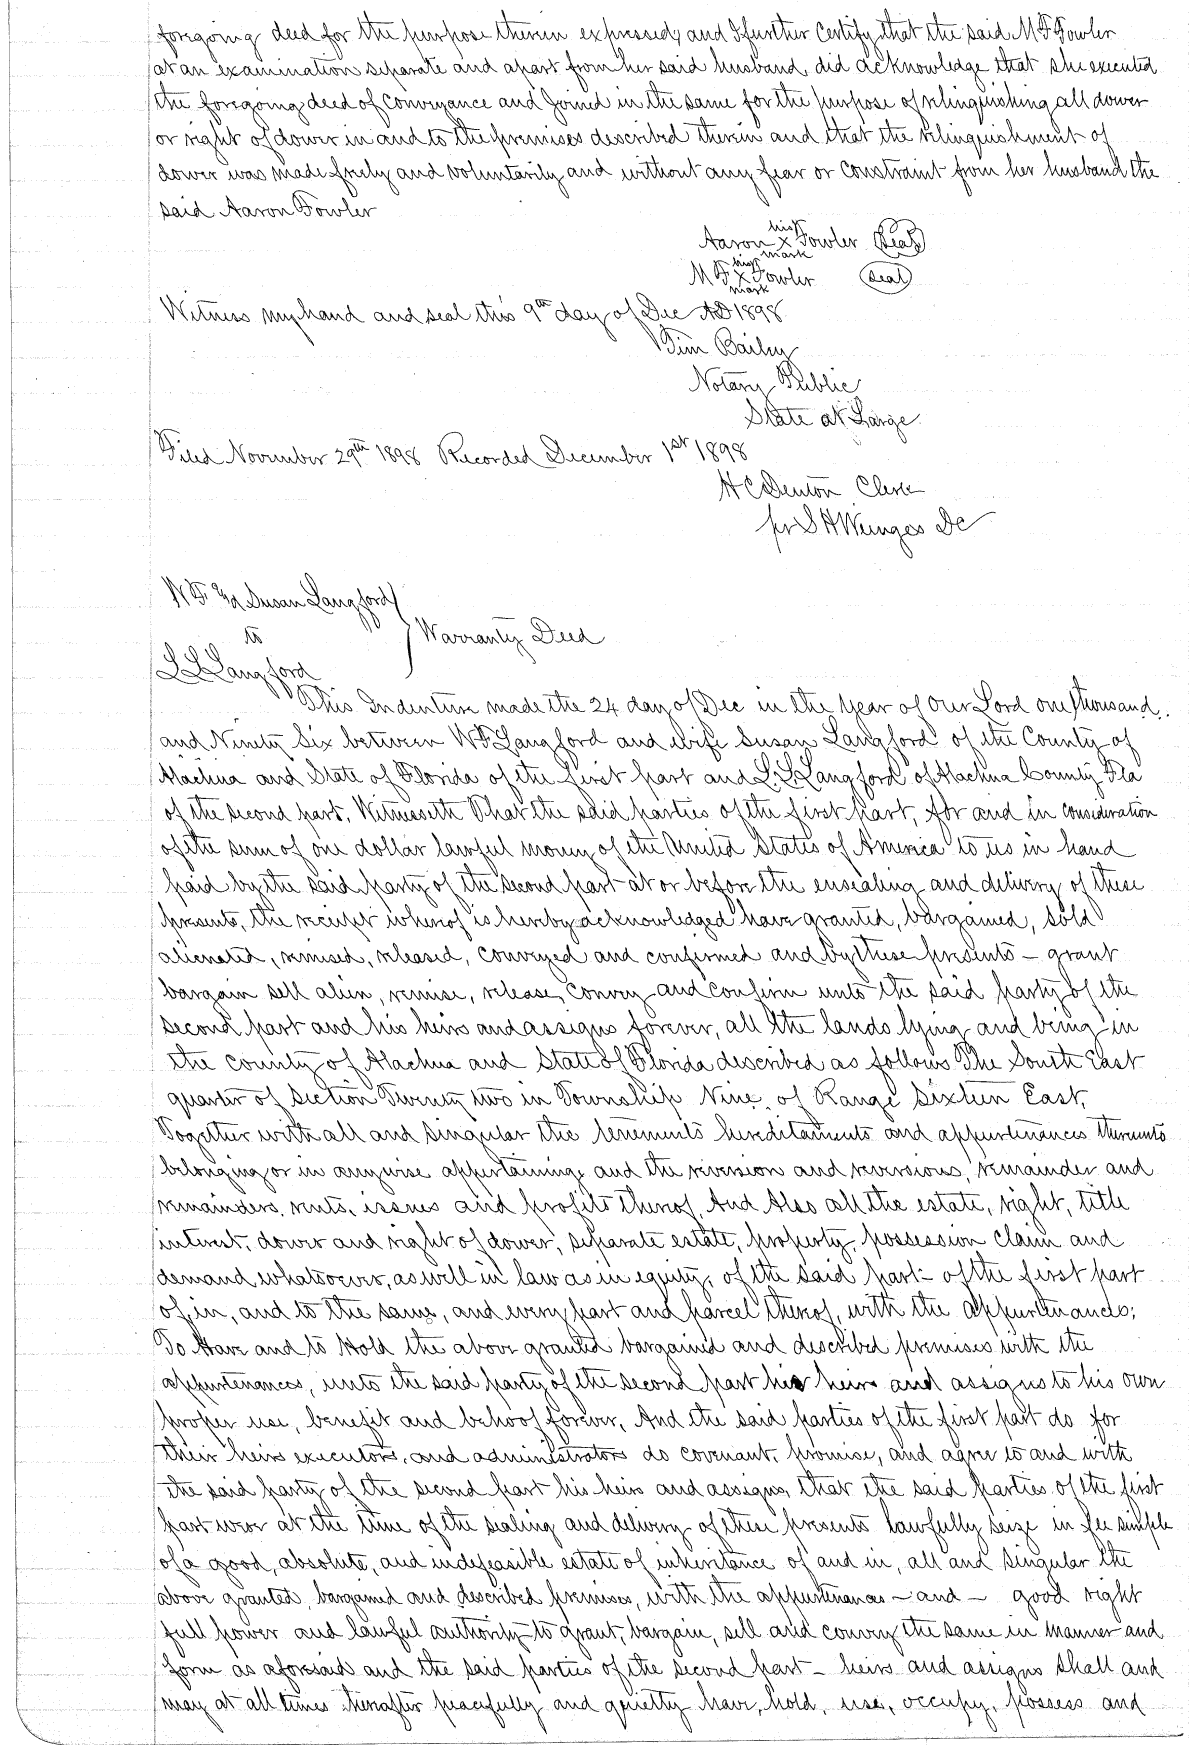 foregoing deed for the purpose therein expressed, and I further Certify that the said M F Fowler
at an examination separate and apart from her said husband, did acknowledge that she executed
the foregoing deed of Conveyance and Joined in the same for the purpose of relinquishing all dower
or right of dower in and to the premises described therein and that the relinquishment of
dower was made freely and voluntarily and without any fear or Constraint from her husband the
said Aaron Fowler
his
Aaron x Fowler Seal
mark
his
M F x Fowler Seal
mark
Witness my hand and seal this 9th day of Dec AD 1898
Tim Bailey
Notary Public
State at Large
Filed November 29th 1898 Recorded December 1st 1898
H C Denton Clerk
pr S H Weinges DC
W F Susan Langford
to
L L Langford
Warranty Deed
This Indenture made the 24 day of Dec in the Year of Our Lord one thousand
and Ninety Six between W F Langford and wife Susan Langford of the County of
Alachua and State of Florida of the first part and L. L. Langford of Alachua County Fla
of the second part, Witnesseth That the said parties of the first part, for and in consideration
of the sum of one dollar lawful money of the United States of America to us in hand
paid by the said party of the second part at or before the ensealing and delivery of these
presents, the receipt whereof is hereby acknowledged have granted, bargained, sold
alienated, remised, released, conveyed and confirmed and by these presents – grant
bargain sell alien, remise, release, convey and confirm unto the said party of the
second part and his heirs and assigns forever, all the lands lying and being in
the county of Alachua and State of Florida described as follows The South East
quarter of Section Twenty two in Township Nine, of Range Sixteen East,
Together with all and singular the tenements hereditaments and appurtenances thereunto
belonging or in anywise appertaining, and the reversion and reversions, remainder and
remainders, rents, issues and profits thereof, And Also all the estate, right, title
interest, dower and right of dower, separate estate, property, possession claim and
demand whatsoever, as well in law as in equity, of the said part– of the first part
of, in, and to the same, and every part and parcel thereof, with the appurtenances;
To Have and to Hold the above granted bargained and described premises with the
appurtenances, unto the said party of the second part his heirs and assigns to his own
proper use, benefit and behoof forever, And the said parties of the first part do for
their heirs executors, and administrators do covenant, promise, and agree to and with
the said party of the second part his heirs and assigns, that the said parties of the first
part wer at the time of the sealing and delivery of these presents lawfully seize in fee simple
of a good, absolute, and indefeasible estate of inheritance of and in, all and singular the
above granted, bargained and described premises, with the appurtenances – and – good right
full power and lawful authority to grant, bargain, sell and convey the same in manner and
form as aforesaid and the said parties of the second part – heirs and assigns shall and
may at all times thereafter peacefully and quietly have, hold, use, occupy, possess and